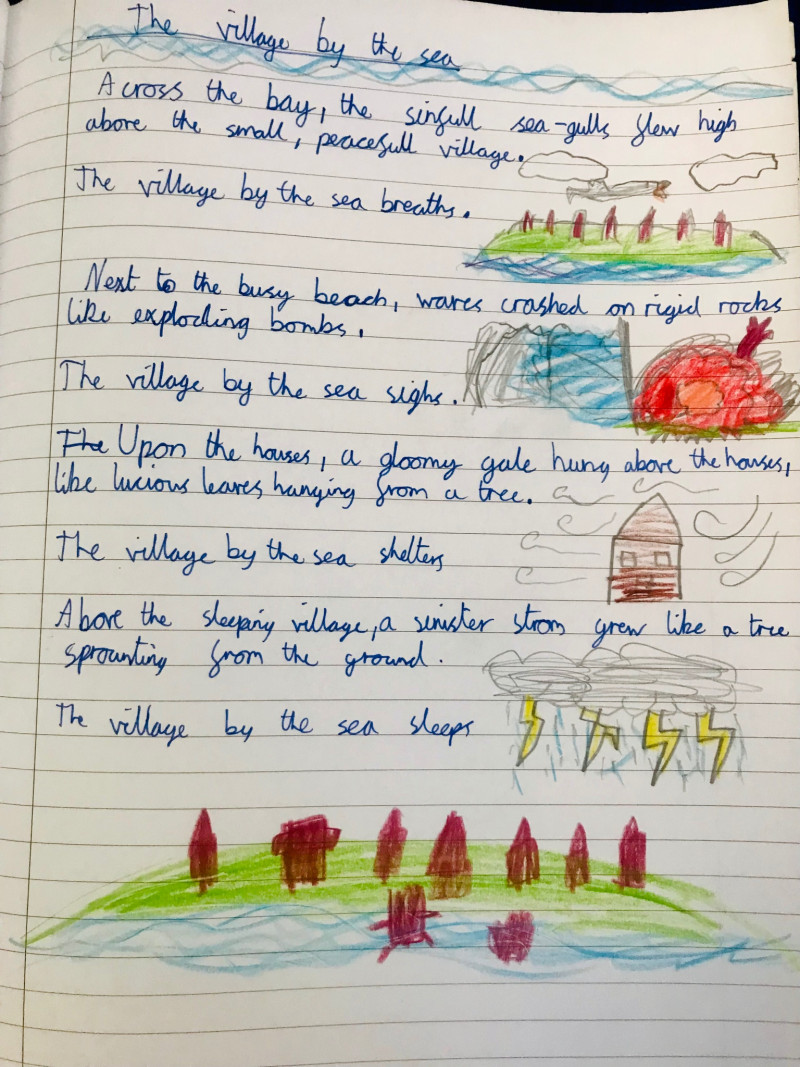 The village by the sea
Across the bay, the sinfull sea-gulls flew high
above the small, peacefull village.
The village by the sea breaths.
Next to the busy beach, waves crashed on rigid rocks
like exploding bombs.
The village by the sea sighs.
The Upon the houses, a gloomy gale hung above the houses,
like lucious leaves hanging from a tree.
The village by the sea shelters
Above the sleeping village, a sinister strom grew like a tree
sprounting from the ground.
The village by the sea sleeps